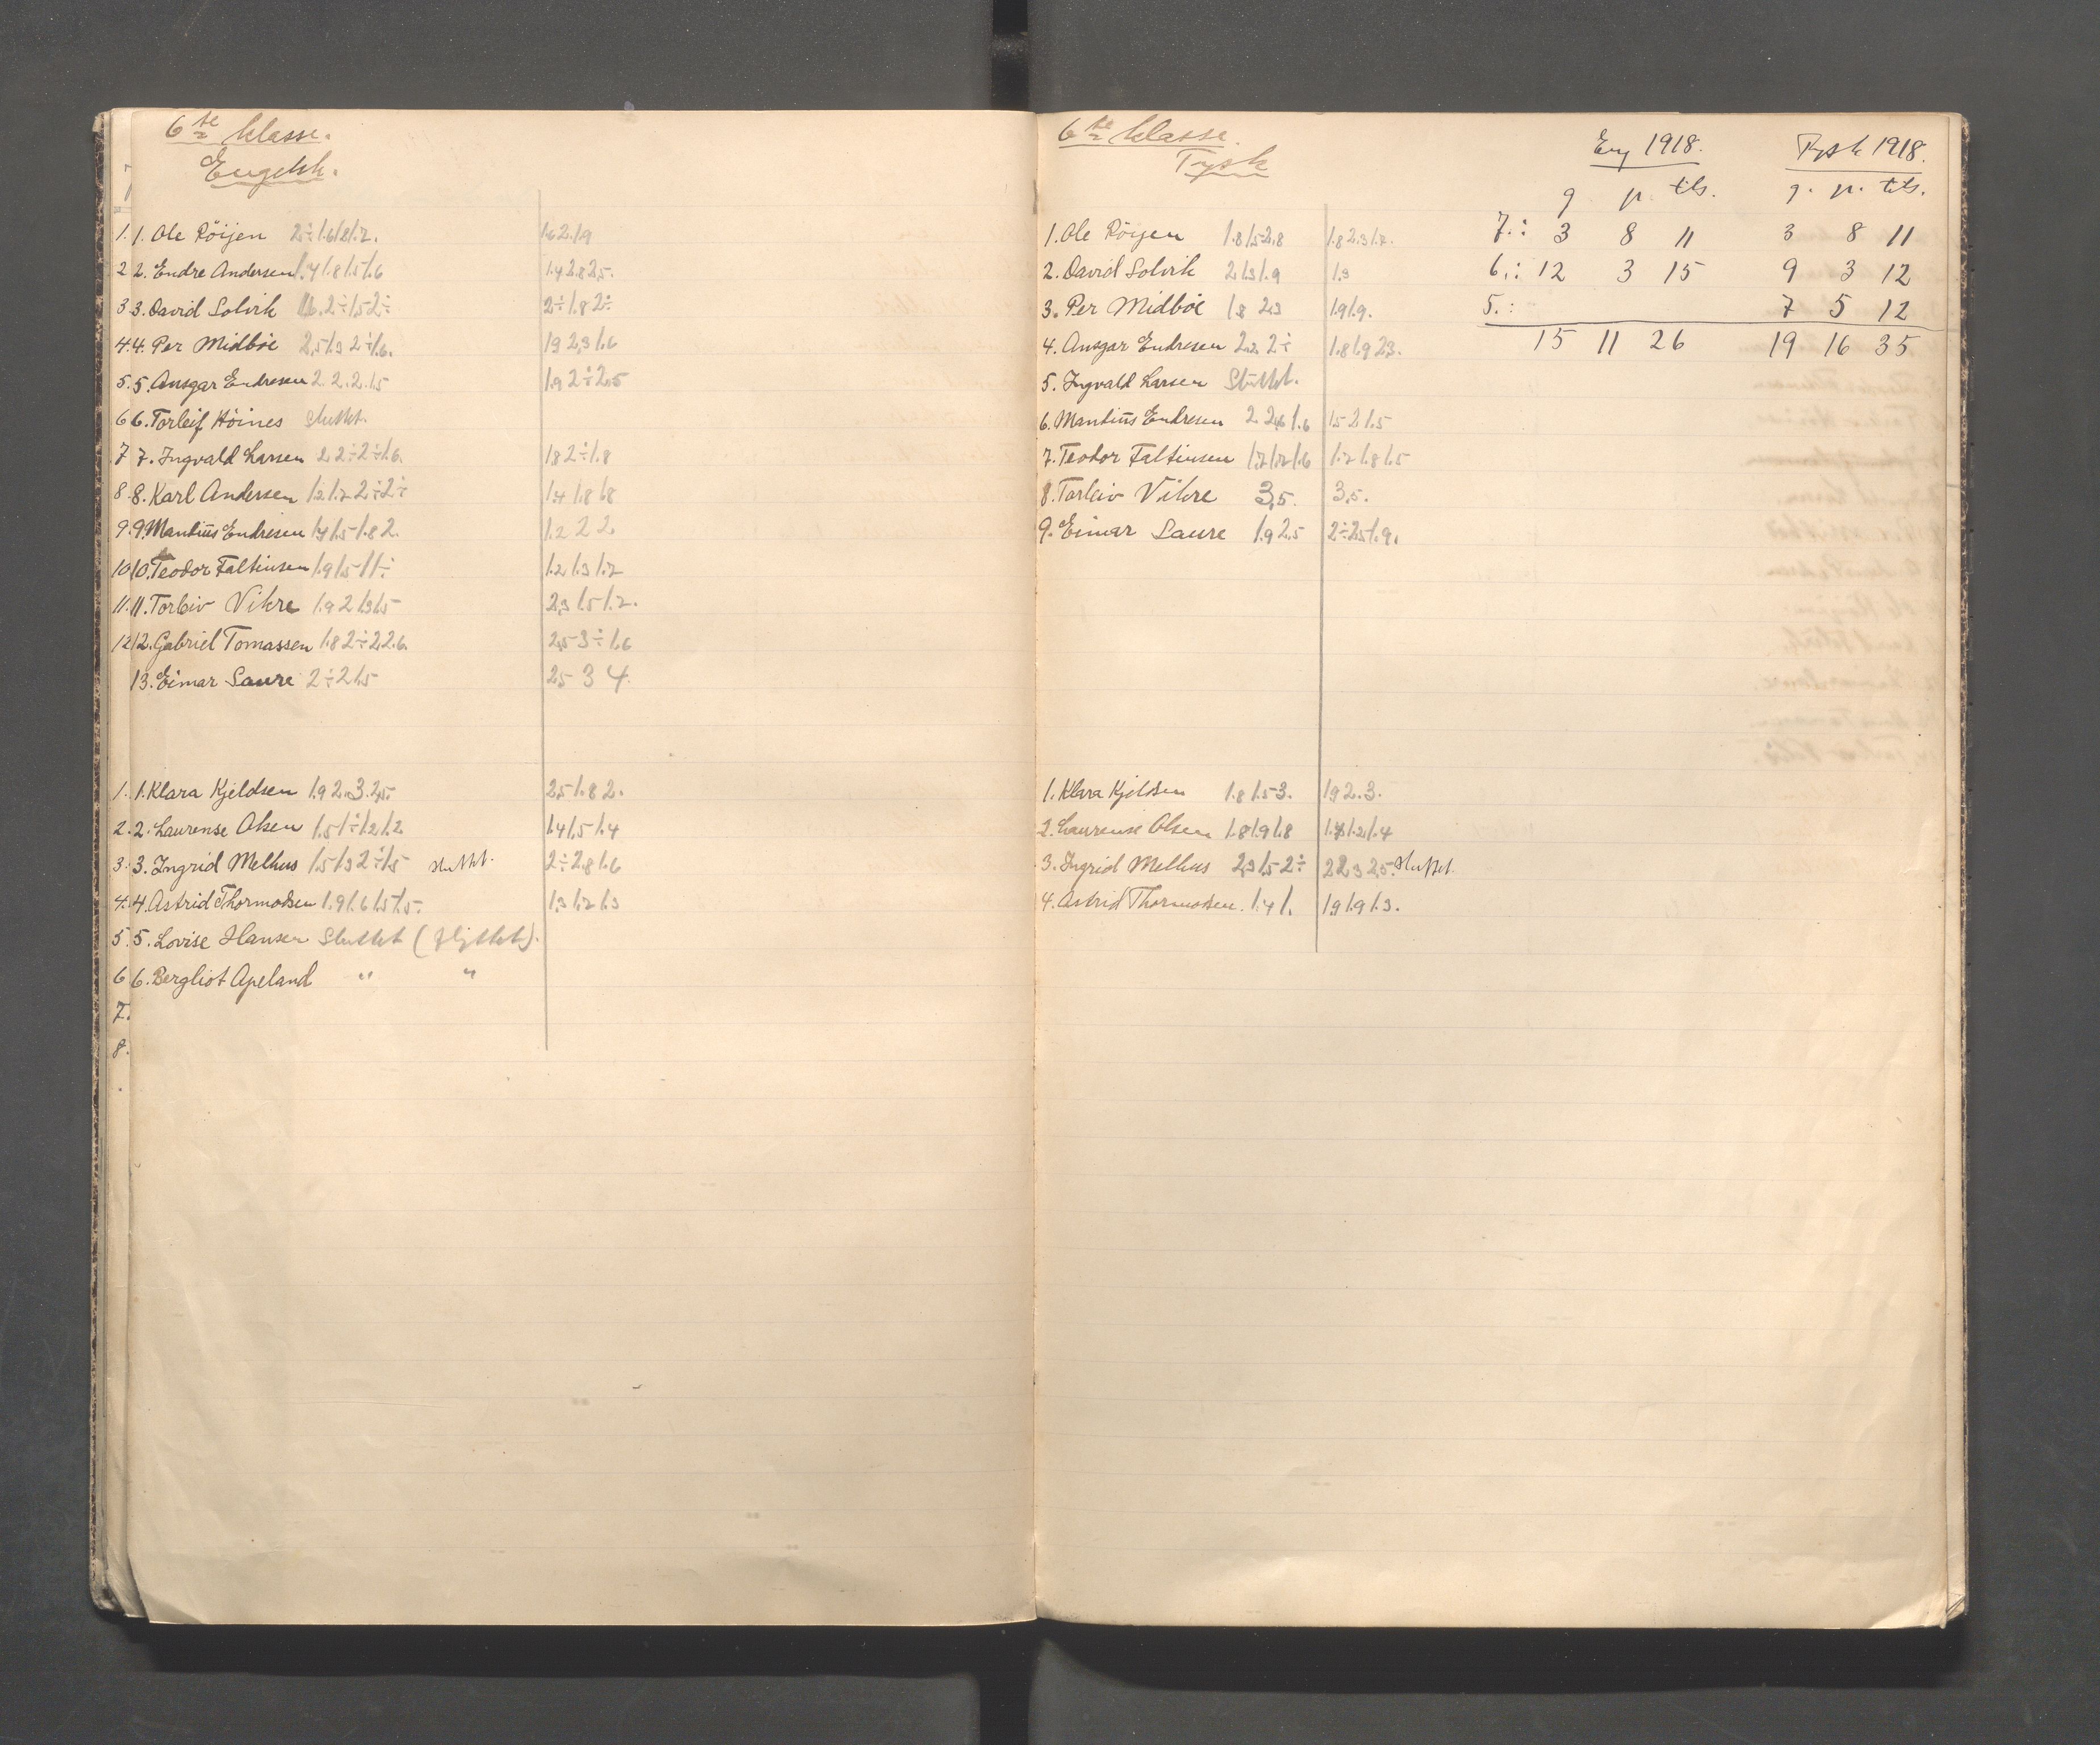 6te klasse.
Engelsk.
1. 1. Ole Röijen 2÷ 1.6 1.8 1.7.
1.6 2. 1.9
2 2. Endre Andersen 1.4 1.8 1.5 1.6
1.4 2.8 2,5.
3 3. David Solvik 1.6. 2÷ 1.5 2÷
2÷ 1.8 2÷
4 4. Per Midböe 2,5 1.3 2÷ 1.6.
1.9 2,3 1.6
5. 5. Ansgar Endresen 2. 2. 2. 1.5
1.9 2÷ 2.5
6 6. Torleif Höines sluttet.
7 7. Ingvald Larsen 2 2÷ 2÷ 1.6.
1.8 2÷ 1.8
8. 8. Karl Andersen 1.2 1.7 2÷ 2÷
1.4 1.8 1.8
9. 9. Mandius Endresen 1.4 1.5 1.8 2.
1.2 2 2.
10 10. Teodor Faltinsen 1.9 1.5 1 1÷
1.2 1.3 1.7
11. 11. Torleiv Vikre 1.9 2 1.3 1.5
2,3 1.5 1.7.
12 12. Gabriel Tomassen 1.8 2÷ 2 2.6.
2,5 3÷ 1.6
13. Eimar Saure 2÷ 2 1.5
2,5 3 4.
1. 1. Klara Kjeldsen 1.9 2. 3. 2,5.
2,5 1.8 2.
2. 2. Laurense Olsen 1.5 1÷ 1.2 1.2.
1.4 1.5 1.4
3. 3. Ingrid Melhus 1.5 1.3 2÷ 1.5 sluttet.
2÷ 2.8 1.6
4. 4. Astrid Thormodsen 1.9 1.6 1.5 1.5.
1.3 1.7 1.3
5. 5. Lovise Hansen Sluttet (flyttet).
6 6. Bergliot Apeland " "
7.
8.
6te klasse.
Tysk
1. Ole Röijen 1.8 1.5 2.8
1.8 2.3 1.7.
2. David Solvik 2 1.3 1.9
1.3
3. Per Midböe 1.8 2.3
1.9 1.9.
4. Ansgar Endresen 2.2 2÷
1.8 1.9 2.3.
5. Ingvald Larsen Sluttet.
6. Mandius Endresen 2 2.6 1.6
1.5 2 1.5
7. Teodor Faltinsen 1.7 1.7 1.6
1.7 1.8 1.5
8. Torleiv Vikre 3,5.
3,5.
9. Eimar Saure 1.9 2.5
2÷ 2.5 1.9.
1. Klara Kjeldsen 1.8 1.5 3.
1.9 2. 3.
2. Laurense Olsen 1.8 1.9 1.8
1.2 1.4
3. Ingrid Melhus 2,3 1.5 2÷
2.3 2,5. sluttet.
4. Astrid Thormodsen. 1.4 1.
1.9 1.9 1.3.
Eng 1918. Tysk 1918.
g p. tils. g. p. tils.
7.: 3 8 11 3 8 11
6.: 12 3 15 9 3 12
5.: 7 5 12
15 11 26 19 16 35